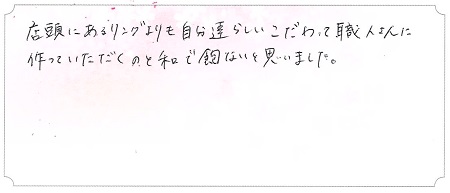 店頭にあるリングよりも自分達らしいこだわって職人さんに
作っていただくのと和で ないと思いました。